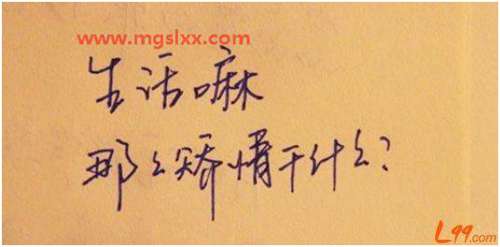 www.mgslxx.com
生活嘛
那么矫情干什么?
L99.com